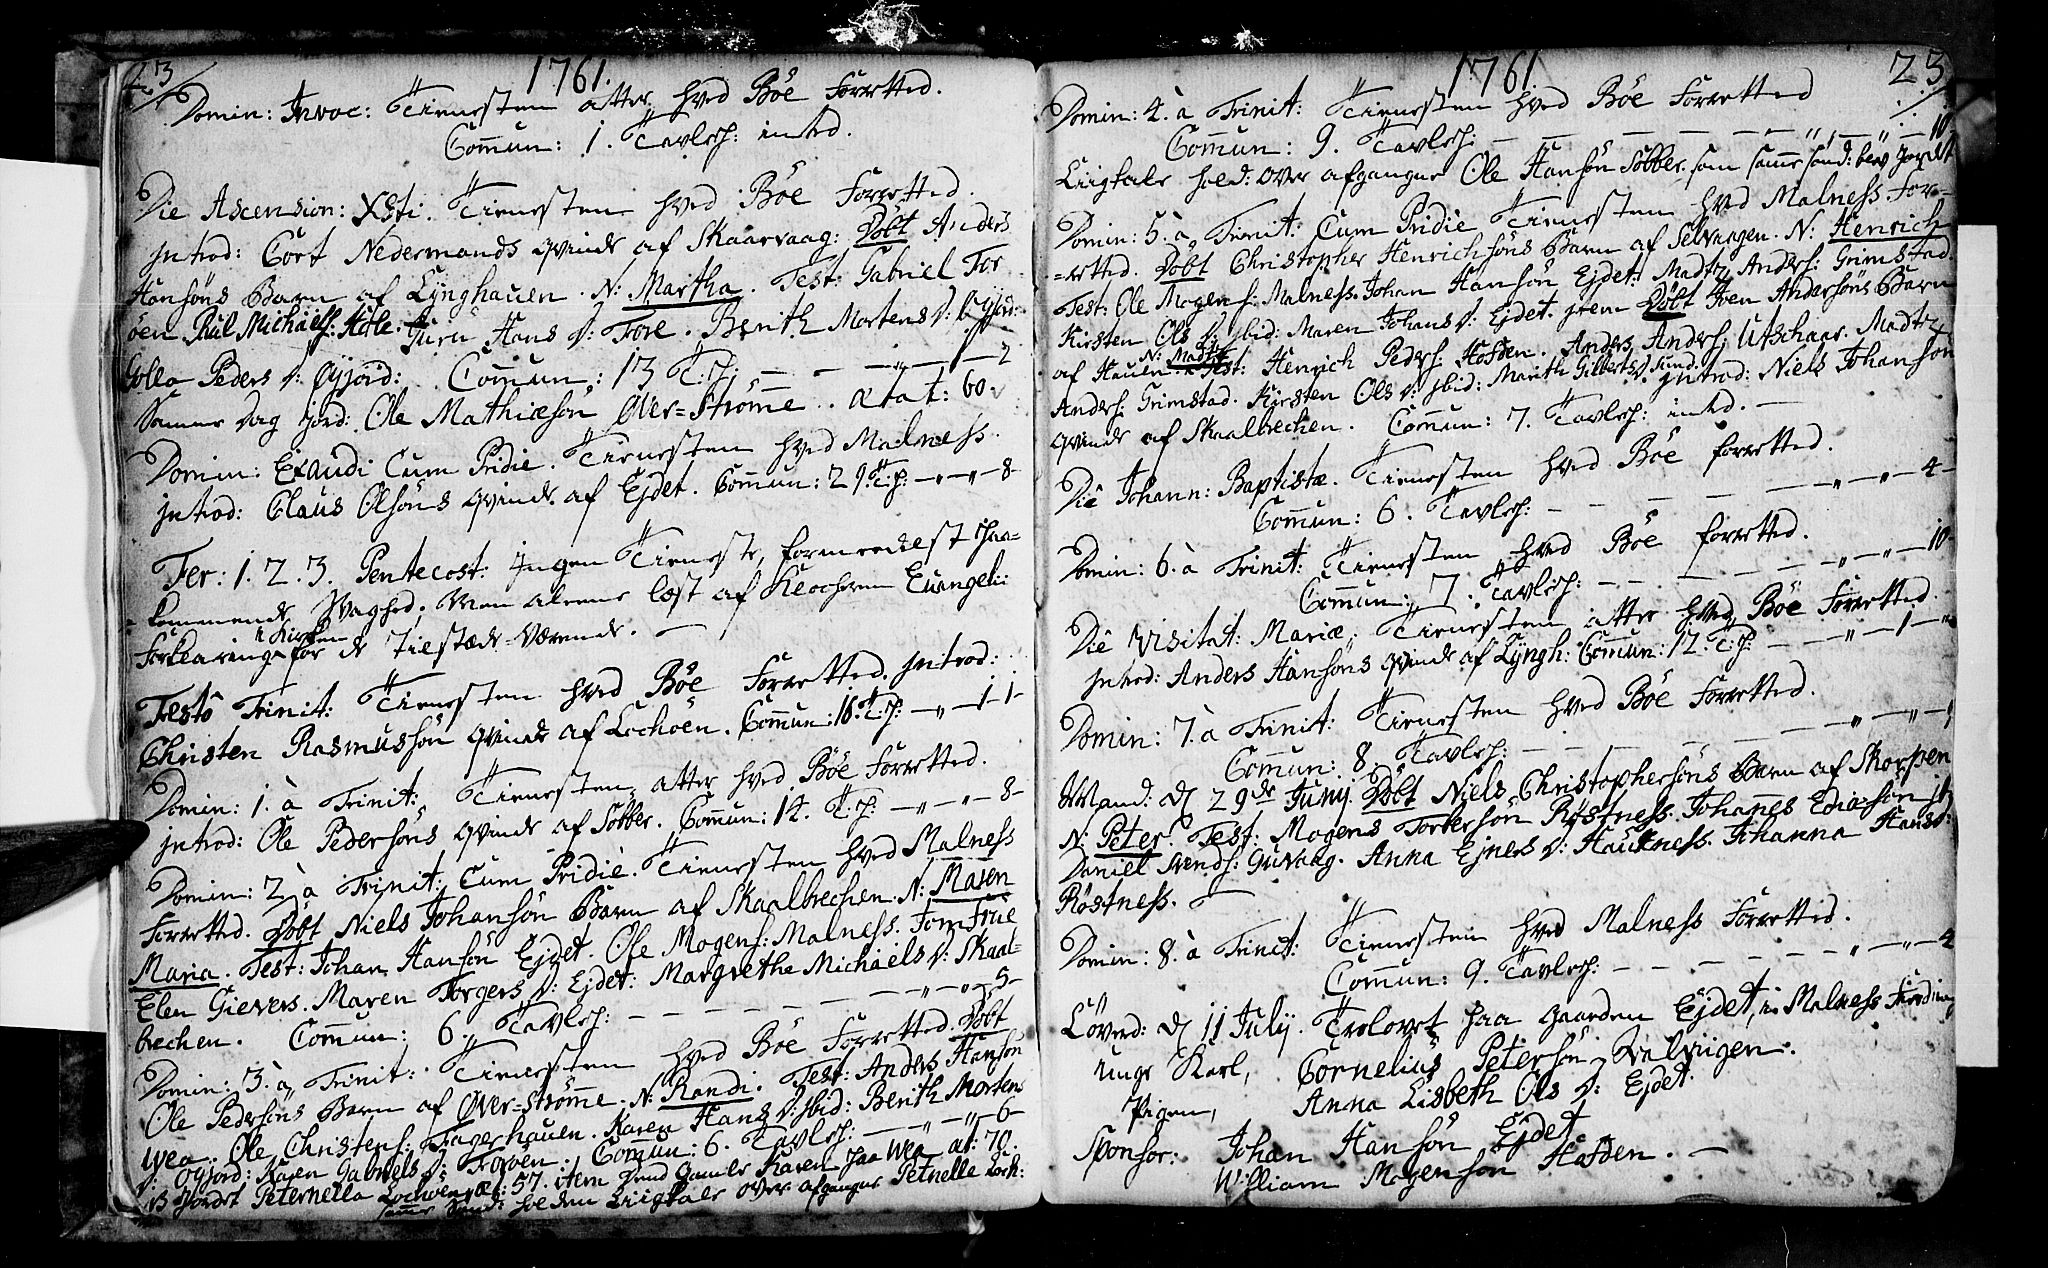 23
1761.
Domin: Invoc: Tienesten atter hved Böe Forretted.
Com̅un: 1. Tavlesp: inted.
Die Ascension: Xsti. Tienesten hved Böe Forretted.
Introd: Cort Nedermands qvinde af Skaarvaag: Döbt Anders
Hansöns Barn af Lÿnghauen. N: Martha. Test: Gabriel For
öen Pül Michaels: Juru Hans D: Fore. Berith Mortens D: Öyjord:
Golla Peders D: Öyjord: Com̅un: 13 T:p: — — „ — 1 — 2
Samme Dag jord: Ole Mathiæsön Over=Ström̅e. ætat: 60
Domin: Exaudi Cum Pridie. Tienesten hved Malness.
Introd: Claus Olsöns qvinde af Ejdet. Com̅un: 29. T:p: — „ — „ — 8
Fer: 1. 2. 3. Pentecost: Ingen Tieneste, formedelst paa=
=kommende Svaghed; Men alene læst af Klocheren Euangelii
Forklaring i Kirken for de Tilstæde-Værende. —
Festo Trinit: Tienesten hved Böe Forretted. Introd:
Christen Rasmussön qvinde af Lochöen. Com̅un: 16. T:p: — „ — 1 - 1 -
Domin: 1. à Trinit: Tienesten atter hved Böe Forretted.
Introd: Ole Pedersöns qvinde af Sobber. Com̅un: 14. T:p: — „ — „ — 8 -
Domin: 2. à Trinit: Cum Pridie. Tienesten hved Malness
Forretted. Döbt Niels Johansön Barn af Skaalbrechen. N: Maren
Maria. Test: Johan Hansön Ejdet. Ole Mogens: Malness. Jomfrue
Elen Gievers. Maren Torgers D: Ejdet: Margrethe Michaels D: Skaal=
brechen. Com̅un: 6. Tavlesp: — — — — — „ — „ — 5 -
Domin: 3. à Trinit: Tienesten hved Böe Forretted. Döbt
Ole Pedersöns Barn af Over=Ström̅e. N: Randi. Test: Anders Hansön
Wea. Ole Christens: Fagerhauen. Karen Hans D: ibid: Berith Mortens
D: Oyjord: Karen Gabriels D: Foröen. Com̅un: 6. Tavlesp: — „ — „ — 6 -
Jordet Peternella Lochöen æt: 57. item Gamle Karen paa Wea æt: 70.
Liigtale over afgangne Petnelle Loch:
1761
23
Domin: 4. à Trinit: Tienesten hved Böe Forretted
Com̅un: 9. Tavlesp: — — — — — — „ — „ — 10
Liigtale holdt over afgangne Ole Hansön Sobber. som samme Sönd: blev jordet
Domin: 5. à Trinit: Cum Pridie Tienesten hved Malness For=
=retted. Döbt Christopher Henrichsöns Barn af Selvaagen. N: Henrich
Test: Ole Mogens: Malness. Johan Hansön Ejdet: Madtz Anders: Grimstad
Kirsten Ols D: ibid: Maren Johans D: Ejdet. item Döbt Iven Andersöns Barn
af Hauen. N: Madtz Test: Henrich Peders: Hofden. Anders Anders: Utschaar. Madtz
Anders: Grimstad. Kirsten Ols D: ibid: Marith Gilberts D: Sund. Introd: Niels Johansön
qvinde af Skaalbrechen. Com̅un: 7. Tavlesp: inted. —
Die Johann: Baptistæ. Tienesten hved Böe forretted.
Com̅un: 6. Tavlesp: — — — — — — „ — „ — 4 -
Domin: 6. à Trinit: Tienesten hved Böe forretted.
Com̅un: 7. Tavlesp: — — — — — — „ — „ — 10
Die Visitat: Mariæ. Tienesten atter hved Böe Forretted.
Introd: Anders Hansöns qvinde af Lÿngh: Com̅un: 12. T:p: — — „ — 1 — „
Domin: 7. à Trinit: Tienesten hved Böe Forretted.
Com̅un: 8. Tavlesp: — — — — — — „ — „ —
Mand: d 29de Junij. Döbt Niels Christophersöns Barn af Skorpen
N: Peter. Test: Mogens Torbersön Röstness. Johan̅es Ediasön ib
Daniel Svends: Guvaag. Anna Ejners D: Haukness. Johanna Hans D:
Röstness.
Domin: 8. à Trinit: Tienesten hved Malness Forretted.
Com̅un: 9. Tavlesp: — — — — — — „ — „ — 4
Löverd: d 11 Julij. Trolovet paa gaarden Ejdet, i Malness Fierding
unge Karl, Cornelius Petersön
Pigen, Anna Lisbeth Ols D: Ejdet.
Sponsor: Johan Hansön Ejdet
William Mogensön Hofden. —